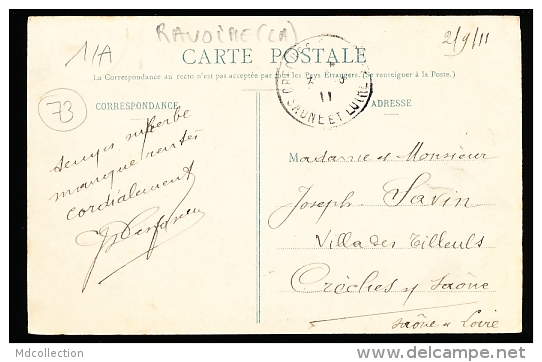 RAVOIRE (LA)
1/A
2/9/11
CARTE POSTALE
La Correspondance au recto n'est pas acceptée par tous les Pays Etrangers. (Se renseigner à la Poste.)
73
CORRESPONDANCE
ADRESSE
11
SAONE ET LOIRE
temps superbe
manque rentes
cordialement
Madame et Monsieur
Joseph Savin
Villa des Tilleuls
Crèches s/ Saône
Saône et Loire
Mdcollection
delcampe.net